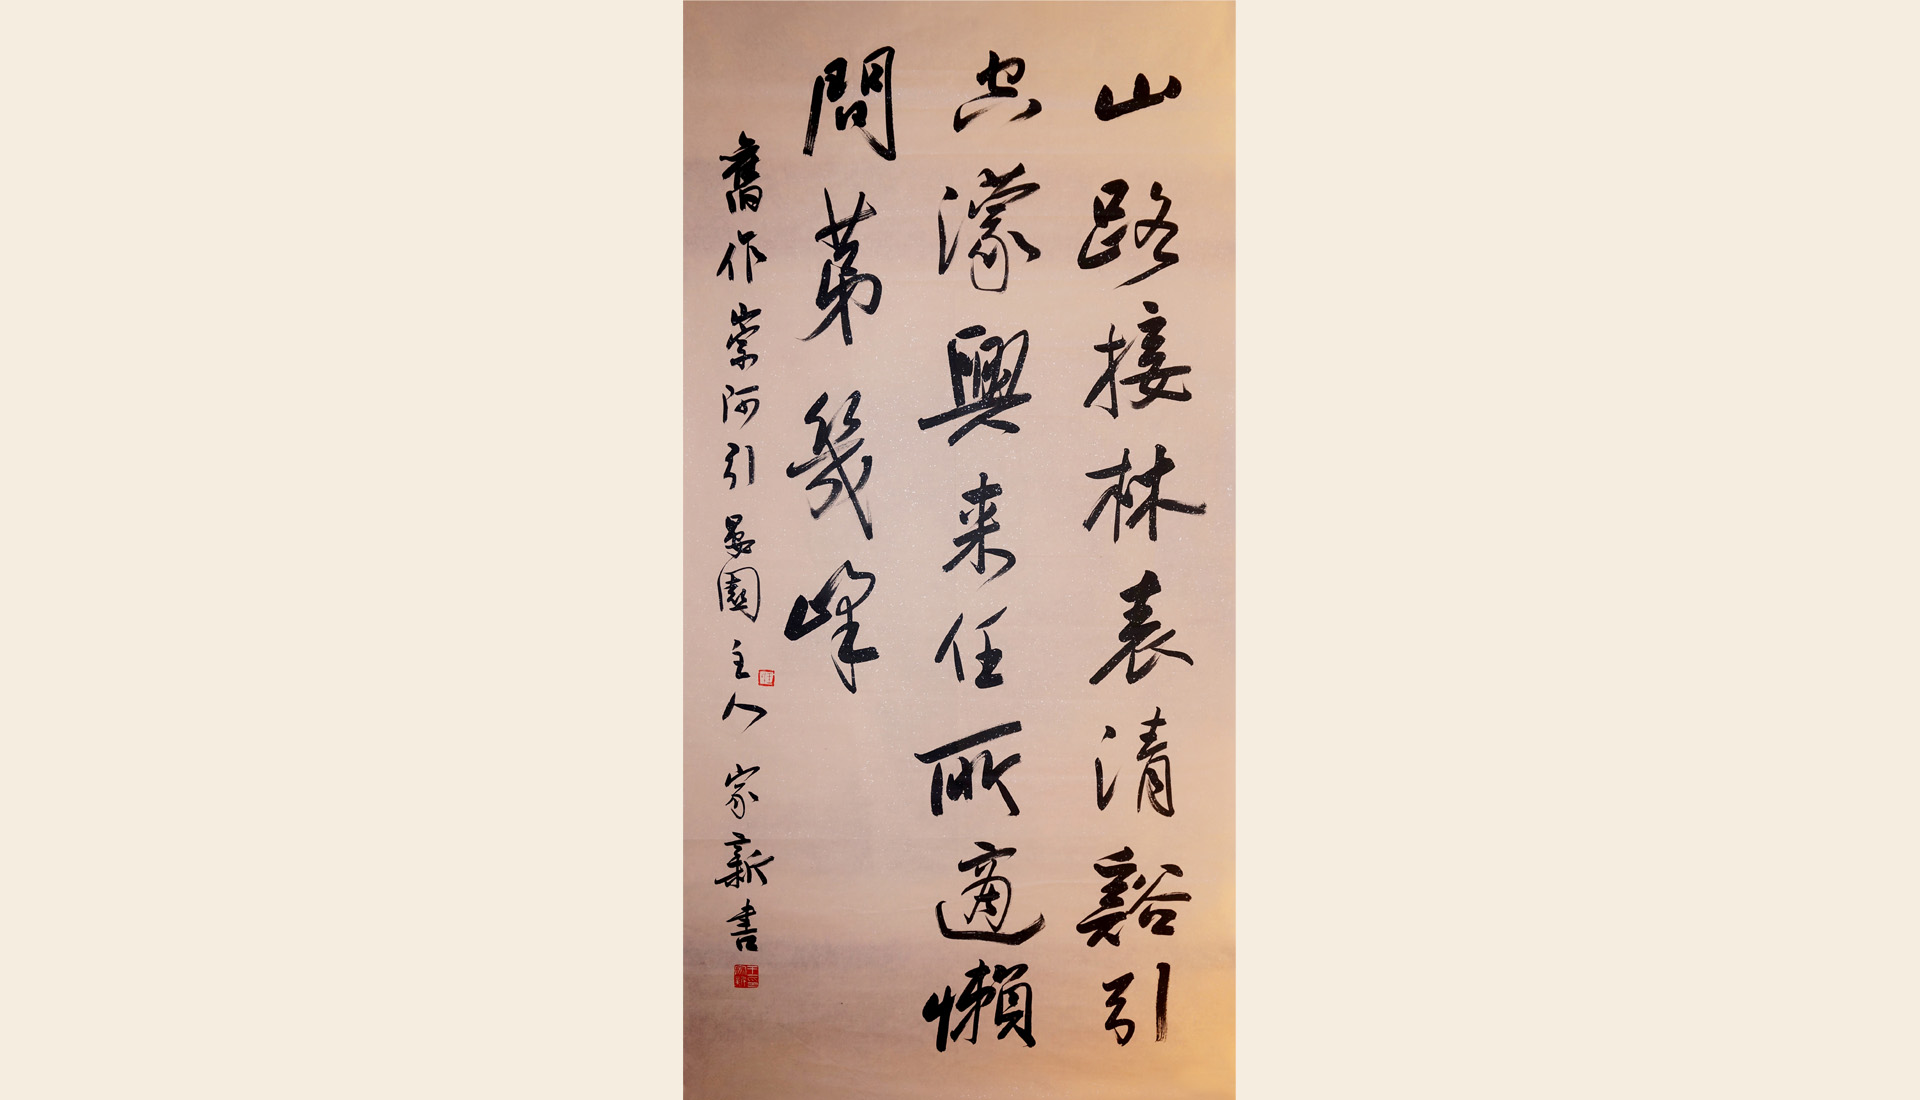 山路接林表清谿引
空濛興来任所適懶
問苐幾峰
舊作崇阿引 晏園主人 家新書